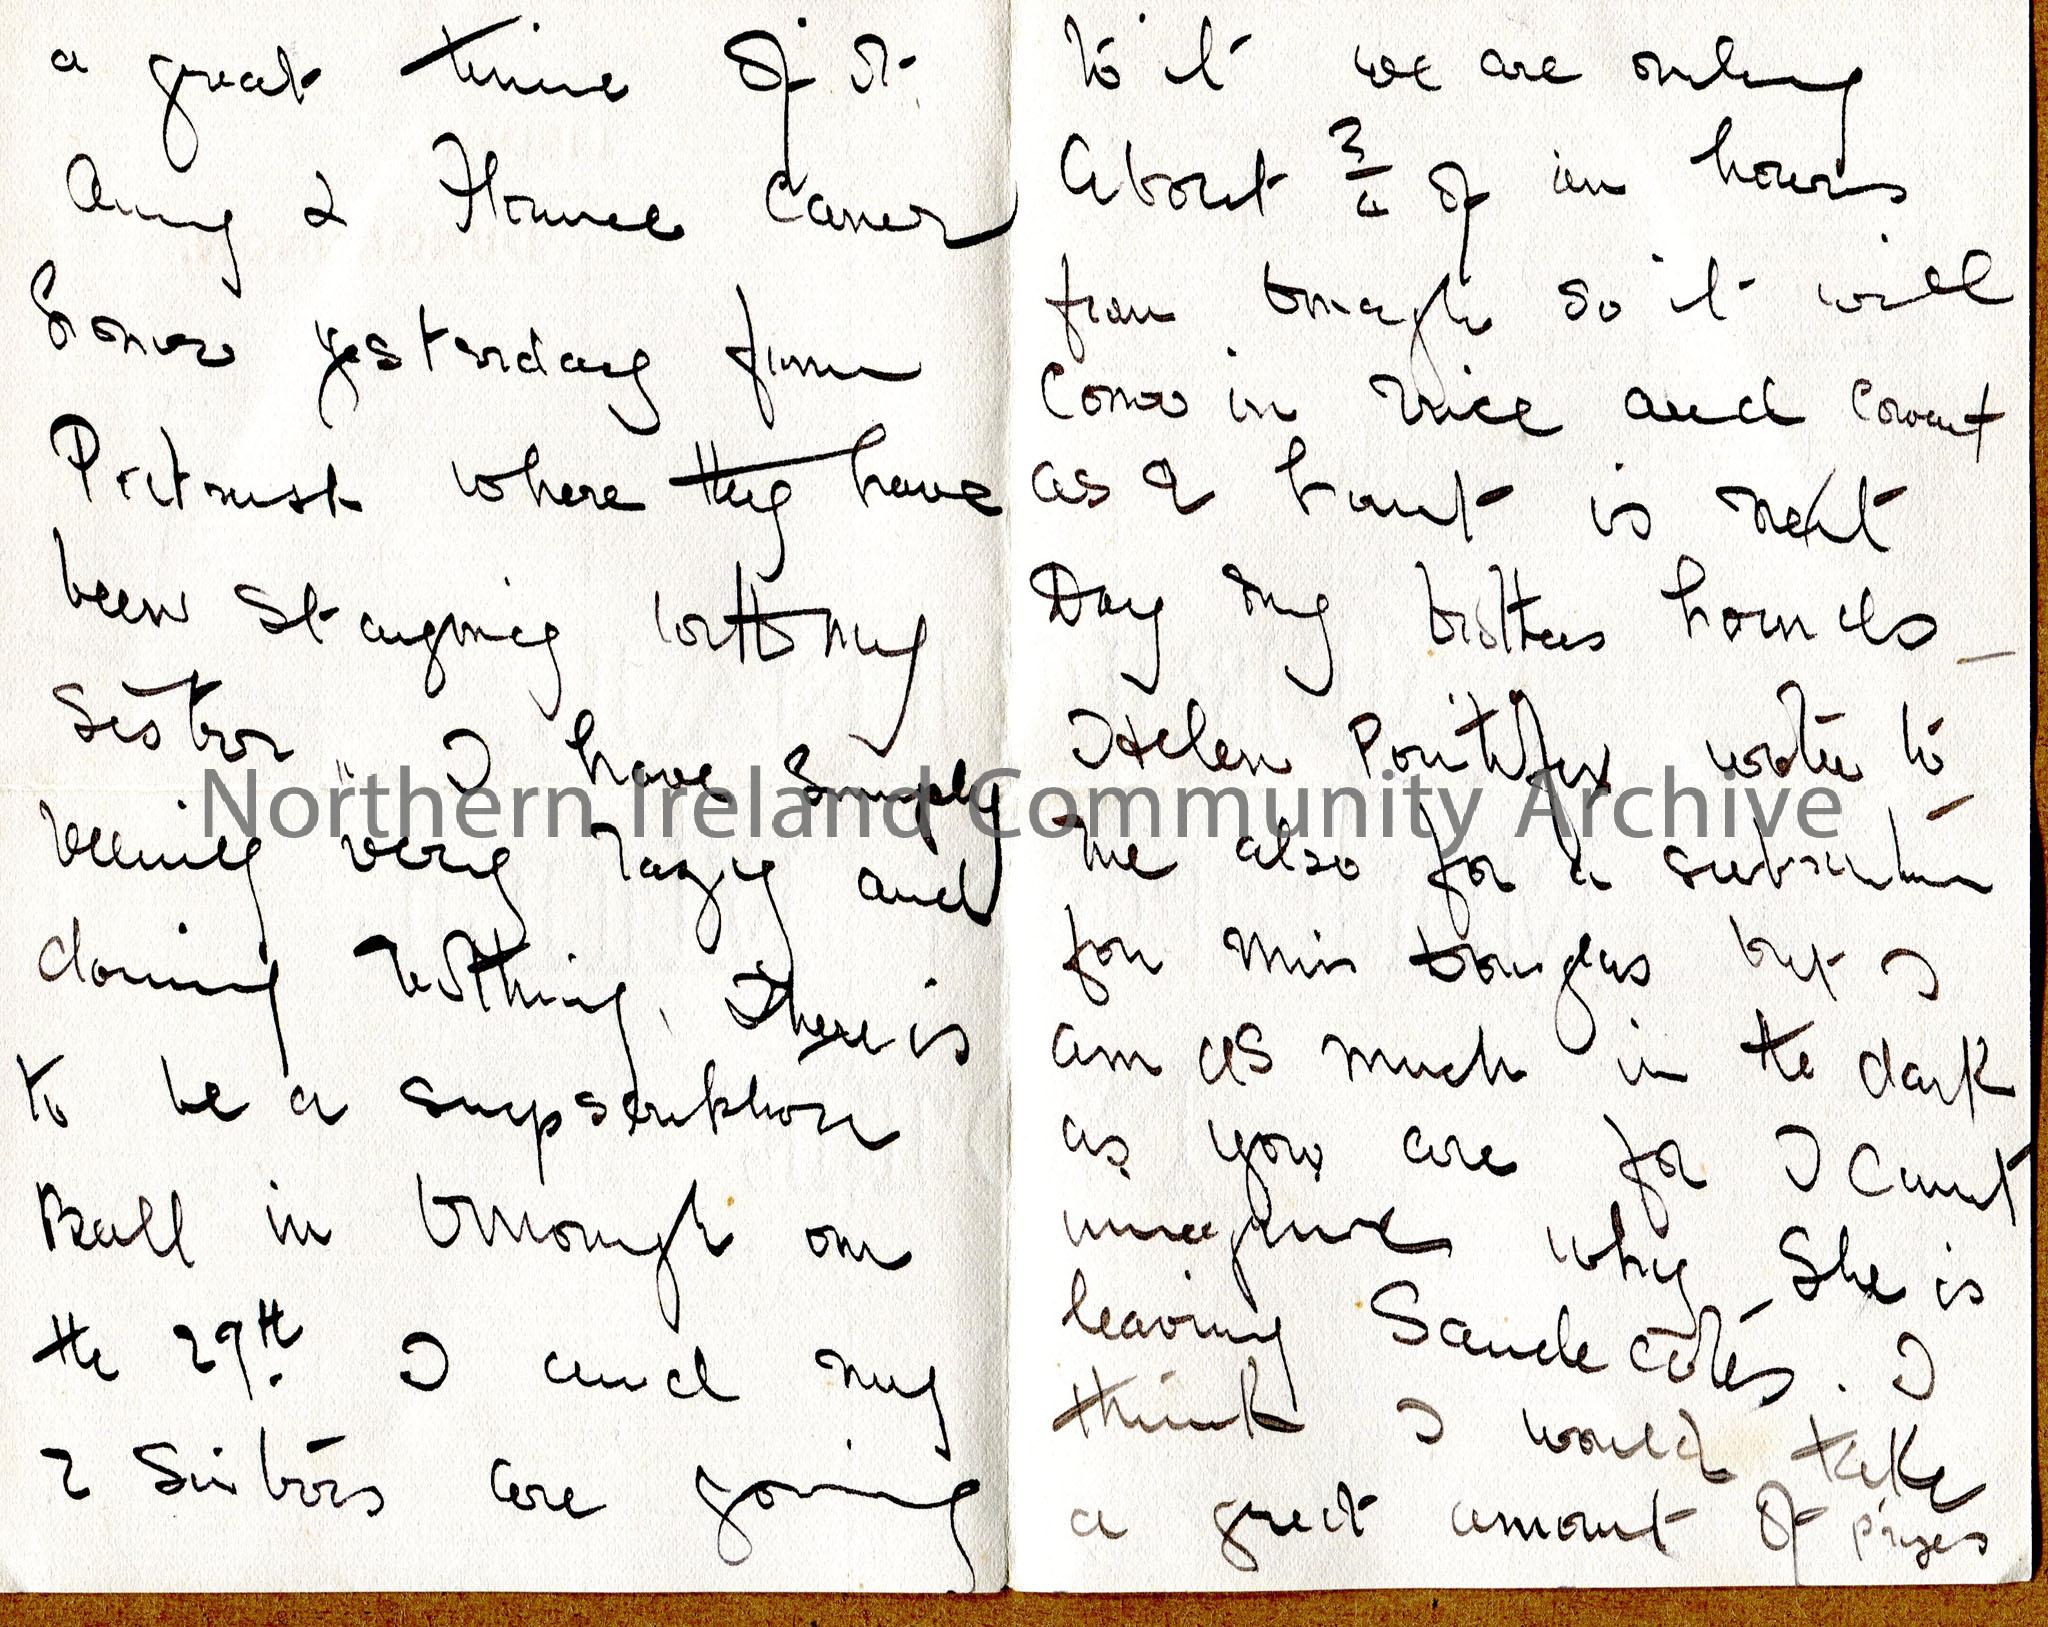 a great time of it
Amy & Florence came
home yesterday from
Portrush where they have
been staying with my
Sister. I have simply
being very lazy and
doing nothing. There is
to be a supscription
Ball in Omagh on
the 29th. I and my
2 Sisters are going
to it we are only
About 3/4 of an hours
from Omagh so it will
Come in nice and
as a hunt is next
Day my brothers hounds –
Helen Pontifex wrote to
me also for a subscription
for Miss Douglas but I
am as much in the dark
as you are for I cannt
imagine why She is
leaving Sandecotes. I
think I would take
a great amount of
Northern Ireland Community Archive